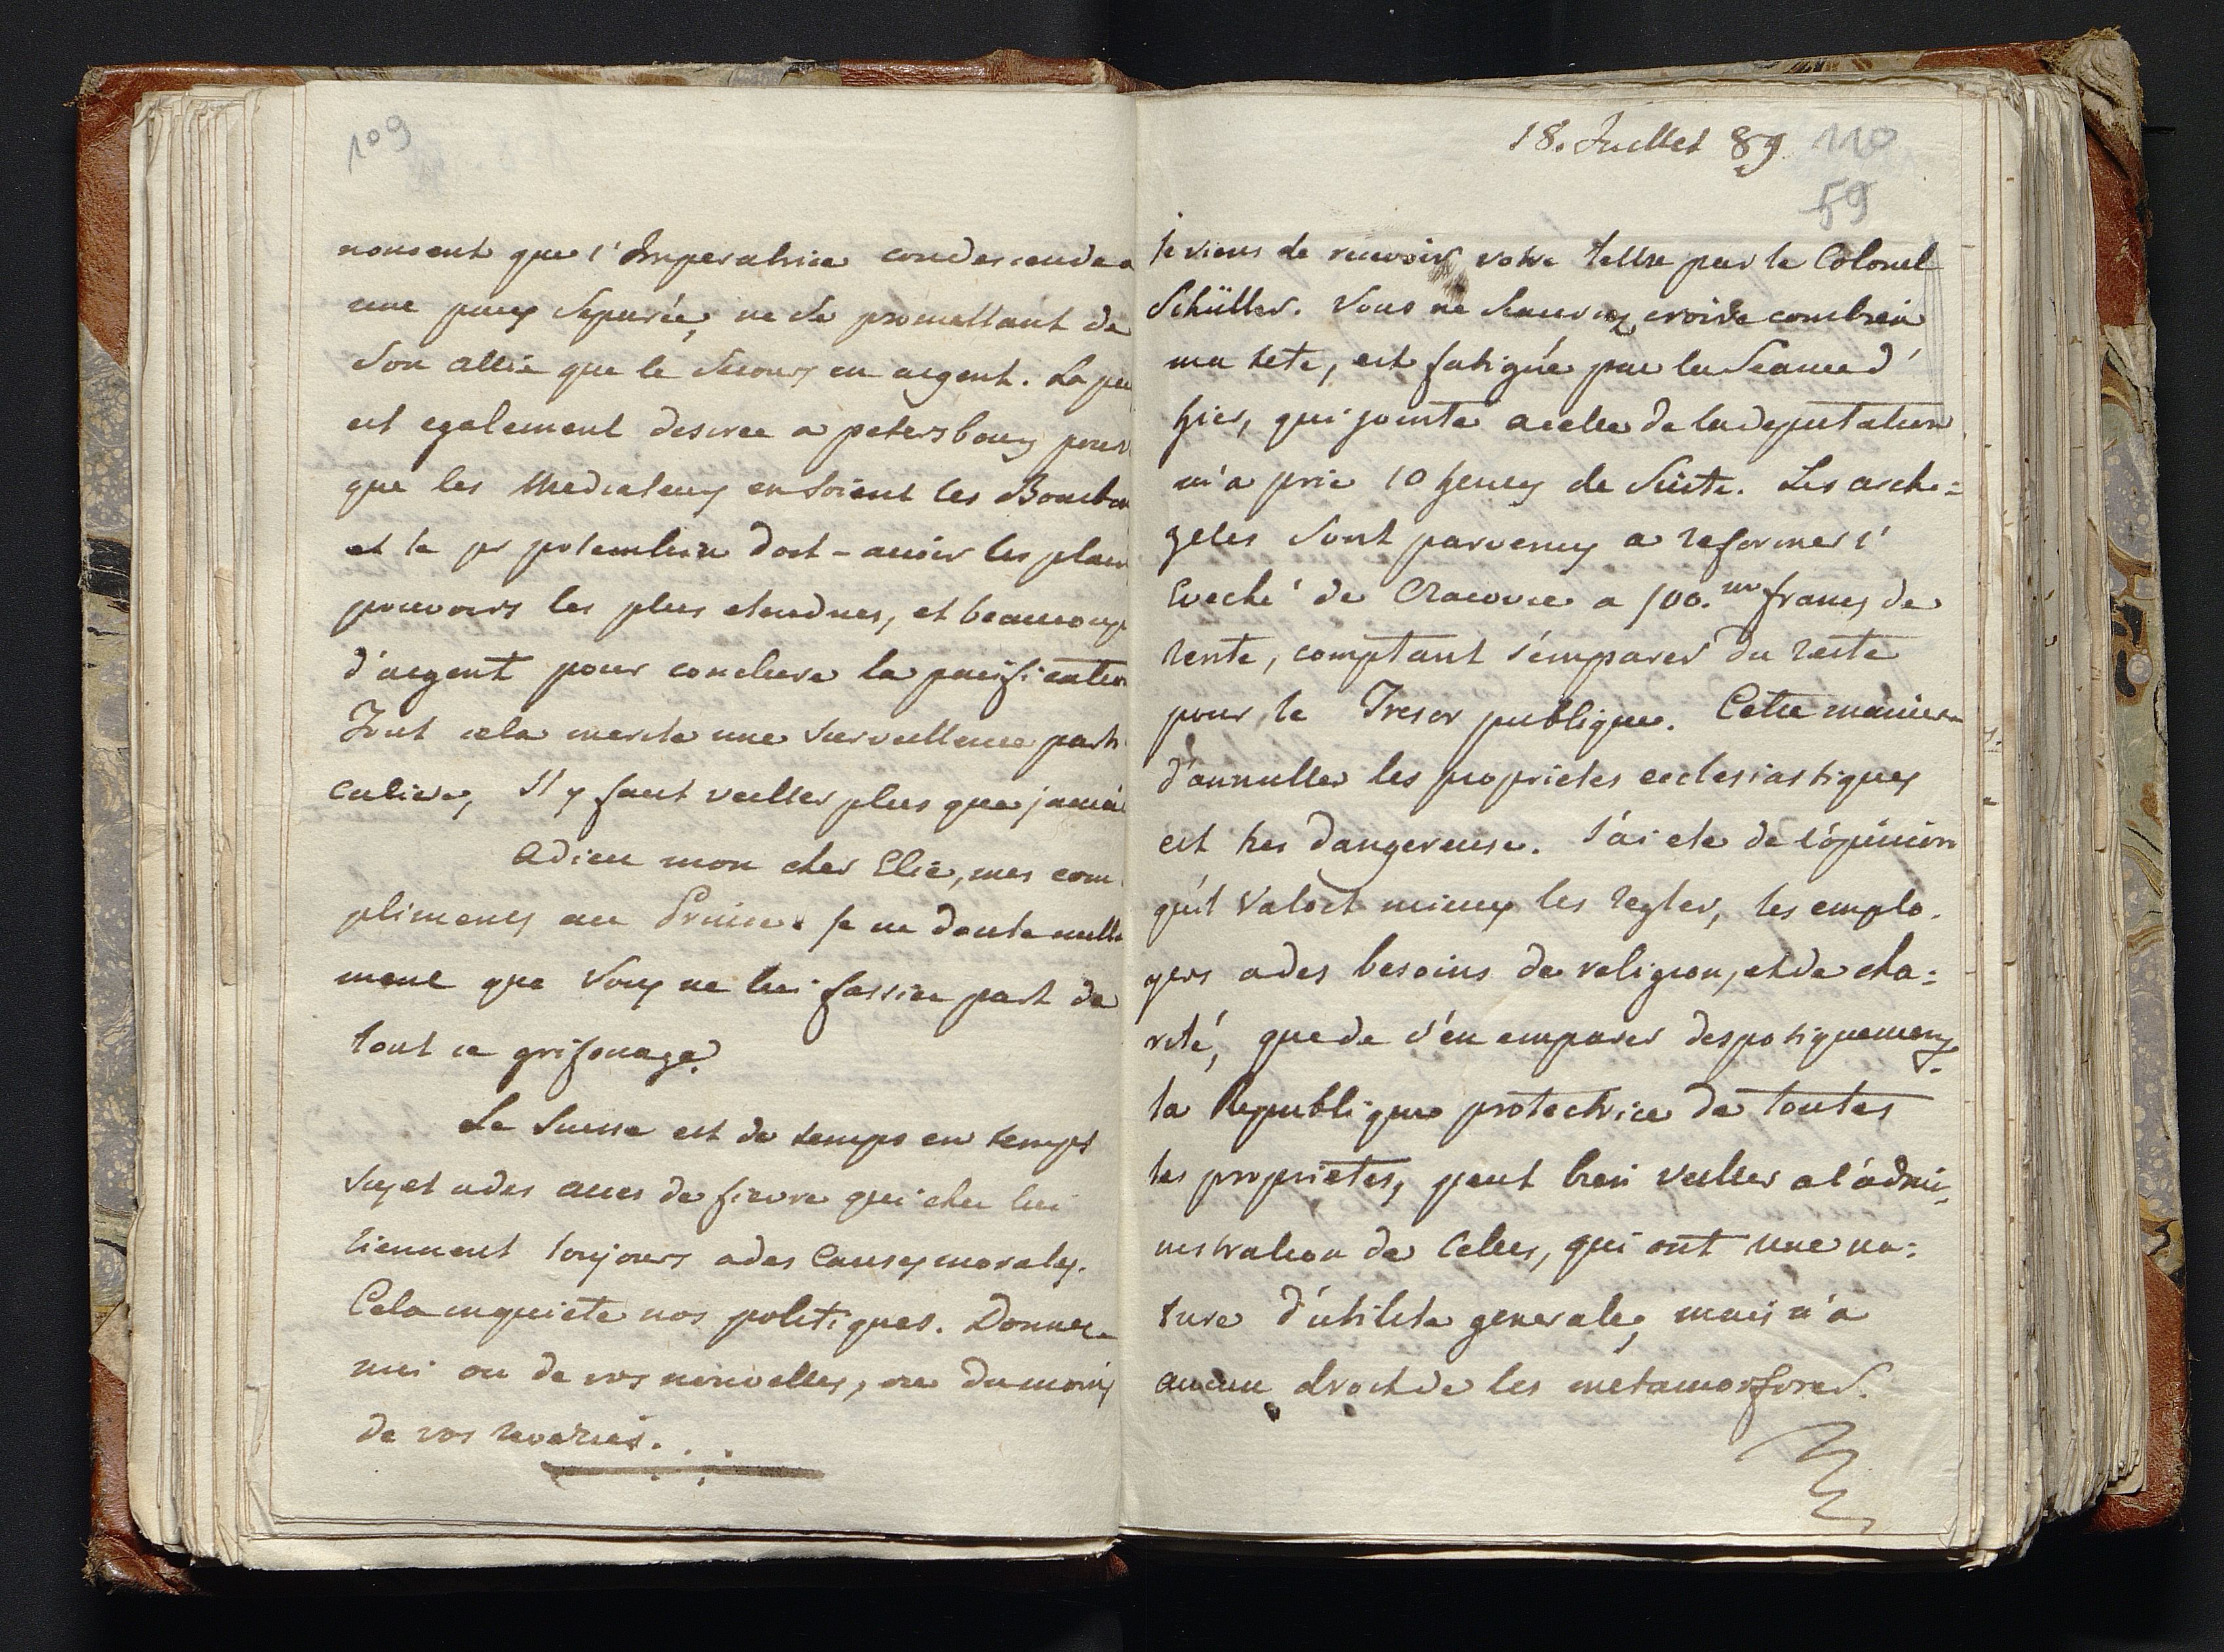 109
noncent que l'Imperatrice condescende a
une paix separée, ne se promettant de
son allié que le secours en argent. La pai
est egalement desiree a petersbourg pour
que les Mediateurs en soient les Bourbon
et le pr potemkin doit-avoir les plein
pouvoirs les plus etendues, et beaucoup
d'argent pour conclure la pacification
Tout cela merite une surveillence parti
culiere, Il y faut veiller plus que jamai
Adieu mon cher Elie, mes com
plimens au Prince. Je ne doute nulle
ment que vous ne lui fassiez part de
tout ce grifonage.
Le Suisse est de temps en temps
sujet a des acces de fievre qui chez lui
tiennent toujours a des causes morales.
Cela inquiete nos politiques. Donnez-
moi ou de vos nouvelles, ou du moins
de vos reveries...
18. Juillet 89 110
59
Je viens de recevoir votre lettre par le Colonel
Schüller. Vous ne sauriez croire combien
ma tete, est fatiguée par la seance d'
hier, qui jointe a celle de la deputation
m'a pris 10 heures de suite. Les arche=
geles sont parvenus a reformer l'
Eveché de Cracovie a 100.m francs de
rente, comptant s'emparer du reste
pour le Tresor publique. Cette maniere
d'annuller les proprietes ecclesiastiques
est tres dangereuse. J'ai ete de l'opinion
qu'il valoit mieux les regler, les emplo-
yers a des besoins de religion, et de cha=
rité, que de s'en emparer despotiquement.
la Republique protectrice de toutes
les proprietes, peut bien veiller a l'admi=
nistration de celles, qui ont une na=
ture d'utilite generale, mais n'a
aucun droit de les metamorfoser.